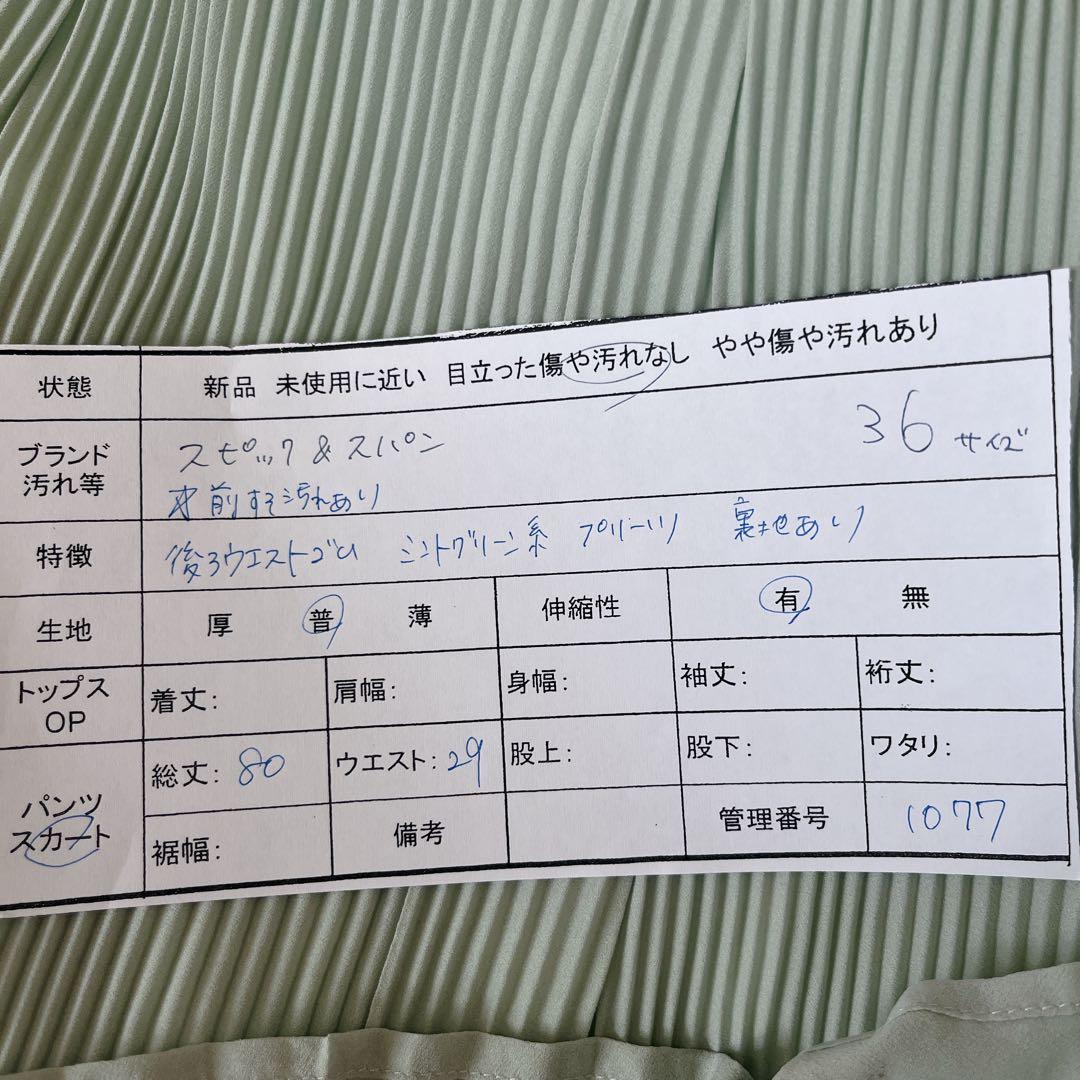 状態 新品 未使用に近い 目立った傷や汚れなし やや傷や汚れあり
ブランド 汚れ等 スピック&スパン 36 サイズ
前すそ汚れあり
特徴 後ろウエストゴム ミントグリーン系 プリーツ 裏地あり
生地 厚 普 薄 伸縮性 有 無
トップス OP 着丈: 肩幅: 身幅: 袖丈: 裄丈:
パンツ スカート 総丈: 80 ウエスト: 29 股上: 股下: ワタリ:
裾幅: 備考 管理番号 1077